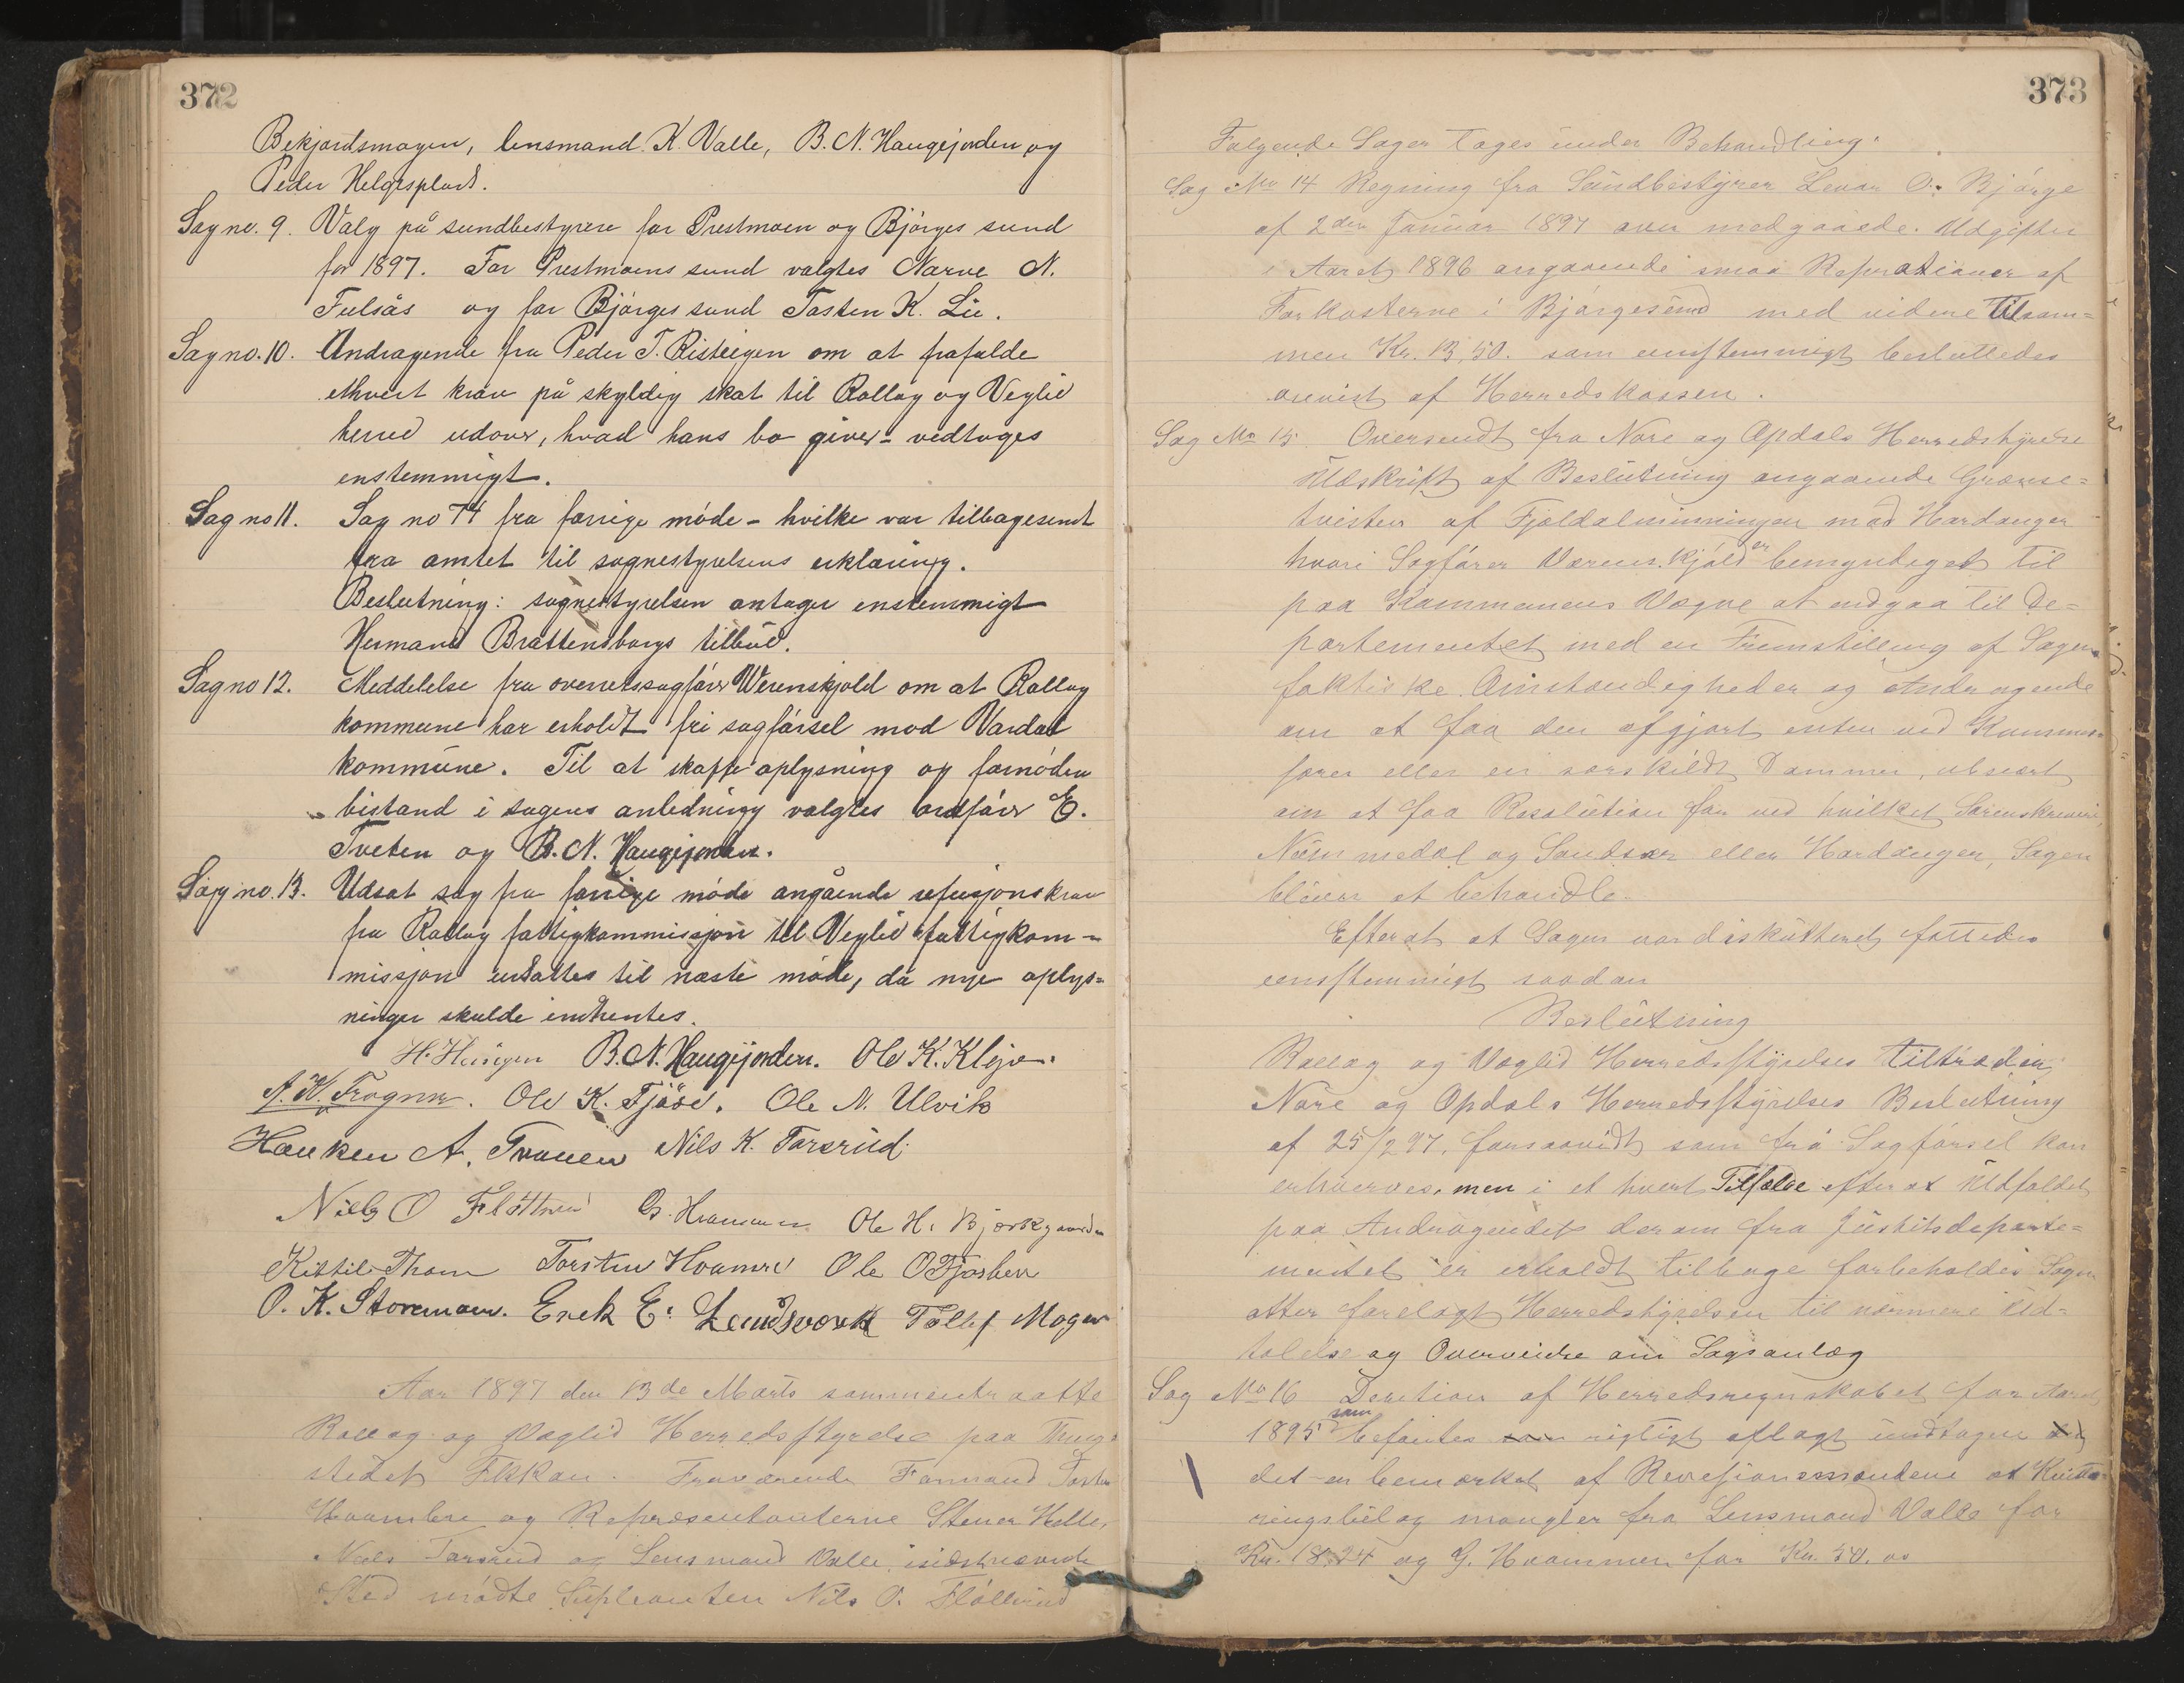 372
Bekjordsmogen, lensmand K. Valle, B. N. Haugejorden og
Peder Helgesplads.
Sag no. 9. Valg på sundbestyrere for Prestmoen og Bjørges sund
for 1897. For Prestmoens sund valgtes Narve N.
Fulsås og for Bjørges sund Tosten K. Lie.
Sag no. 10. Andragende fra Peder T. Risteigen om at frafalde
ethvert krav på skyldig skat til Rollag og Veglid
herred udover, hvad hans bo giver - vedtoges
enstemmigt.
Sag no 11. Sag no 74 fra forrige møde - hvilke var tilbagesendt
fra amtet til sognestyrelsens erklæring.
Beslutning: sognestyrelsen antager enstemmigt
Hermand Brattensborgs tilbud.
Sag no 12. Meddelelse fra overretssagfører Werenskjold om at Rollag
kommune har erholdt fri sagførsel mod Vardal
kommune. Til at skaffe oplysning og fornøden
bistand i sagens anledning valgtes ordfører E.
Tveten og B. N. Haugejorden.
Sag no. 13. Udsat sag fra forrige møde angående refusjonskrav
fra Rollag fattigkommissjon til Veglid fattigkom-
missjon udsattes til næste møde, da nye oplys-
ninger skulde indhentes.
B. N. Haugejorden. Ole K. Kleja.
A. K. Frogner. Ole K. Fjøse. Ole N. Ulvik
Hauken A. Traaen Nils K. Tarsrud.
Niels O Fløttrud G. Hvammen Ole H. Bjerkgaarden
Kittil Thom Torsten Hvamre Ole O Fjosber
O. K. Storemoen. Erek E. Landsverk Tollef Mogen
Aar 1897 den 13de Marts sammentraatte
Rollag og Væglid Herredsstyrelse paa Thing-
stedet Fekkan. Fraværende Formand Tosten
Hvambre og Repræsentanterne Stener Helle,
Neels Tarsrud og Lensmand Valle, i sidstnævnte
Sted mødte Supleanten Nils O. Fløttrud
373
Følgende Sager toges under Behandling:
Sag No 14 Regning fra Sundbestyrer Levor O. Bjørge
af 2den Januar 1897 over medgaaede Udgifter
i Aaret 1896 angaaende smaa Reprationer af
Farkosterne i Bjørgesund med videre tilsam-
men Kr. 13,50. som eenstemmigt besluttedes
anvist af Herredskassen.
Sag No 15. Oversendt fra Nore og Opdals Herredsstyrelse
Udskrift af Beslutning angaaende Grænse-
tvisten af Fjeldalminningen mod Hardanger
hvori Sagfører Værenskjold er bemyndeget til
paa Kommunens Vegne at indgaa til De-
partementet med en Fremstilling af Sagens
faktiske Omstændigheder og Andragende
om at faa den afgjort enten ved Kommis-
sorer eller en særskildt Dommer, ubenært
om at faa Resolution for ved hvilket Sorenskriveri,
Nummedal og Sandsvær eller Hardanger, Sagen
bliver at behandle.
Efterat at Sagen var diskutteret fattedes
eenstemmigt saadan
Beslutning
Rollag og Væglid Herredsstyrelse tiltræder
Nore og Opdals Herredsstyrelses Beslutning
af 25/2 97. forsaavidt som fri Sagførsel kan
erhverves, men i et hvert Tilfælde efterat Udfaldet
paa Andragendet derom fra Justitsdeparte-
mentet er erholdt tilbage forbeholdes Sagen
atter forelagt Herredsstyrelsen til nærmere Ud-
talelse og Overveielse om Sagsanlæg
Sag No 16 Decition af Herredsregnskabet for Aaret
1895 som befantes rigtigt aflagt undtagen
det er bemærket af Revisionsmændene at Kvitte-
ringsbilag mangler fra Lensmand Valle for
Kr. 18,24 og G. Hvammen for Kr. 50.00